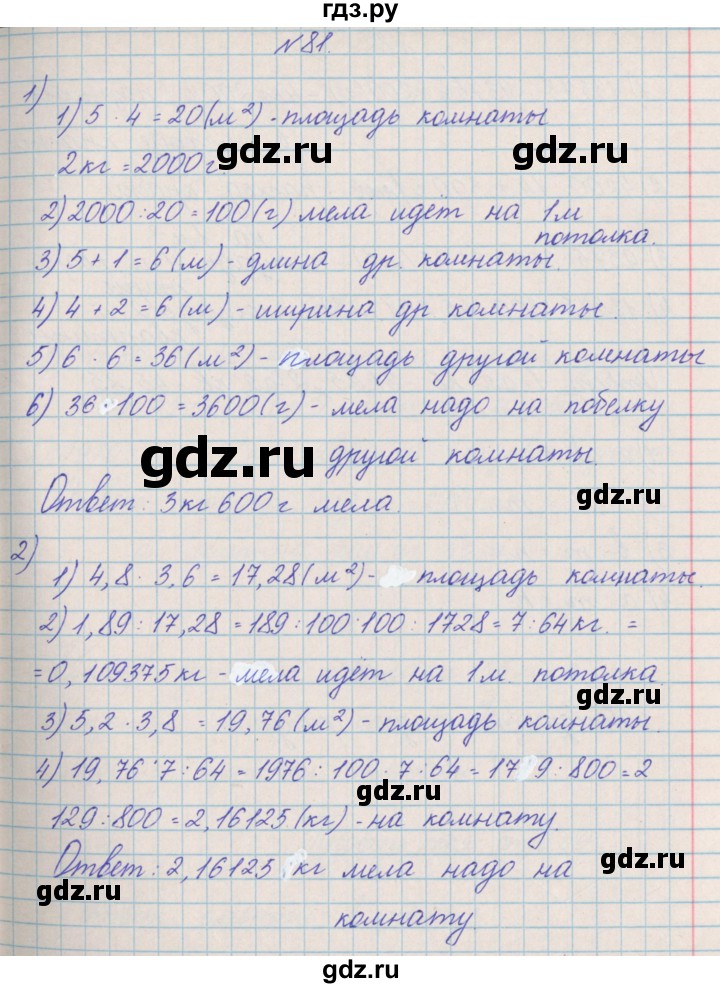 гдз.ру
№81.
1)
1) 5 · 4 = 20 (м²) - площадь комнаты
2 кг = 2000 г
gdz.ru
gdz.ru
2) 2000 : 20 = 100 (г) мела идёт на 1 м
потолка.
3) 5 + 1 = 6 (м) - длина др. комнаты.
gdz.ru
gdz.ru
4) 4 + 2 = 6 (м) - ширина др комнаты.
5) 6 · 6 = 36 (м²) - площадь другой комнаты
6) 36 · 100 = 3600 (г) - мела надо на побелку
gdz.ru
другой комнаты.
gdz.ru
Ответ: 3 кг 600 г мела.
2)
gdz.ru
1) 4,8 · 3,6 = 17,28 (м²) - площадь комнаты.
2) 1,89 : 17,28 = 189 : 100 · 100 : 1728 = 7 : 64 кг. =
= 0,109375 кг - мела идёт на 1 м. потолка
gdz.ru
gdz.ru
3) 5,2 · 3,8 = 19,76 (м²) - площадь комнаты.
4) 19,76 · 7 : 64 = 1976 : 100 · 7 : 64 = 17 9 : 800 = 2
gdz.ru
129 : 800 = 2,16125 (кг) - на комнату.
gdz.ru
Ответ: 2,16125 кг мела надо на
gdz.ru
комнату.
gdz.ru
gdz.ru